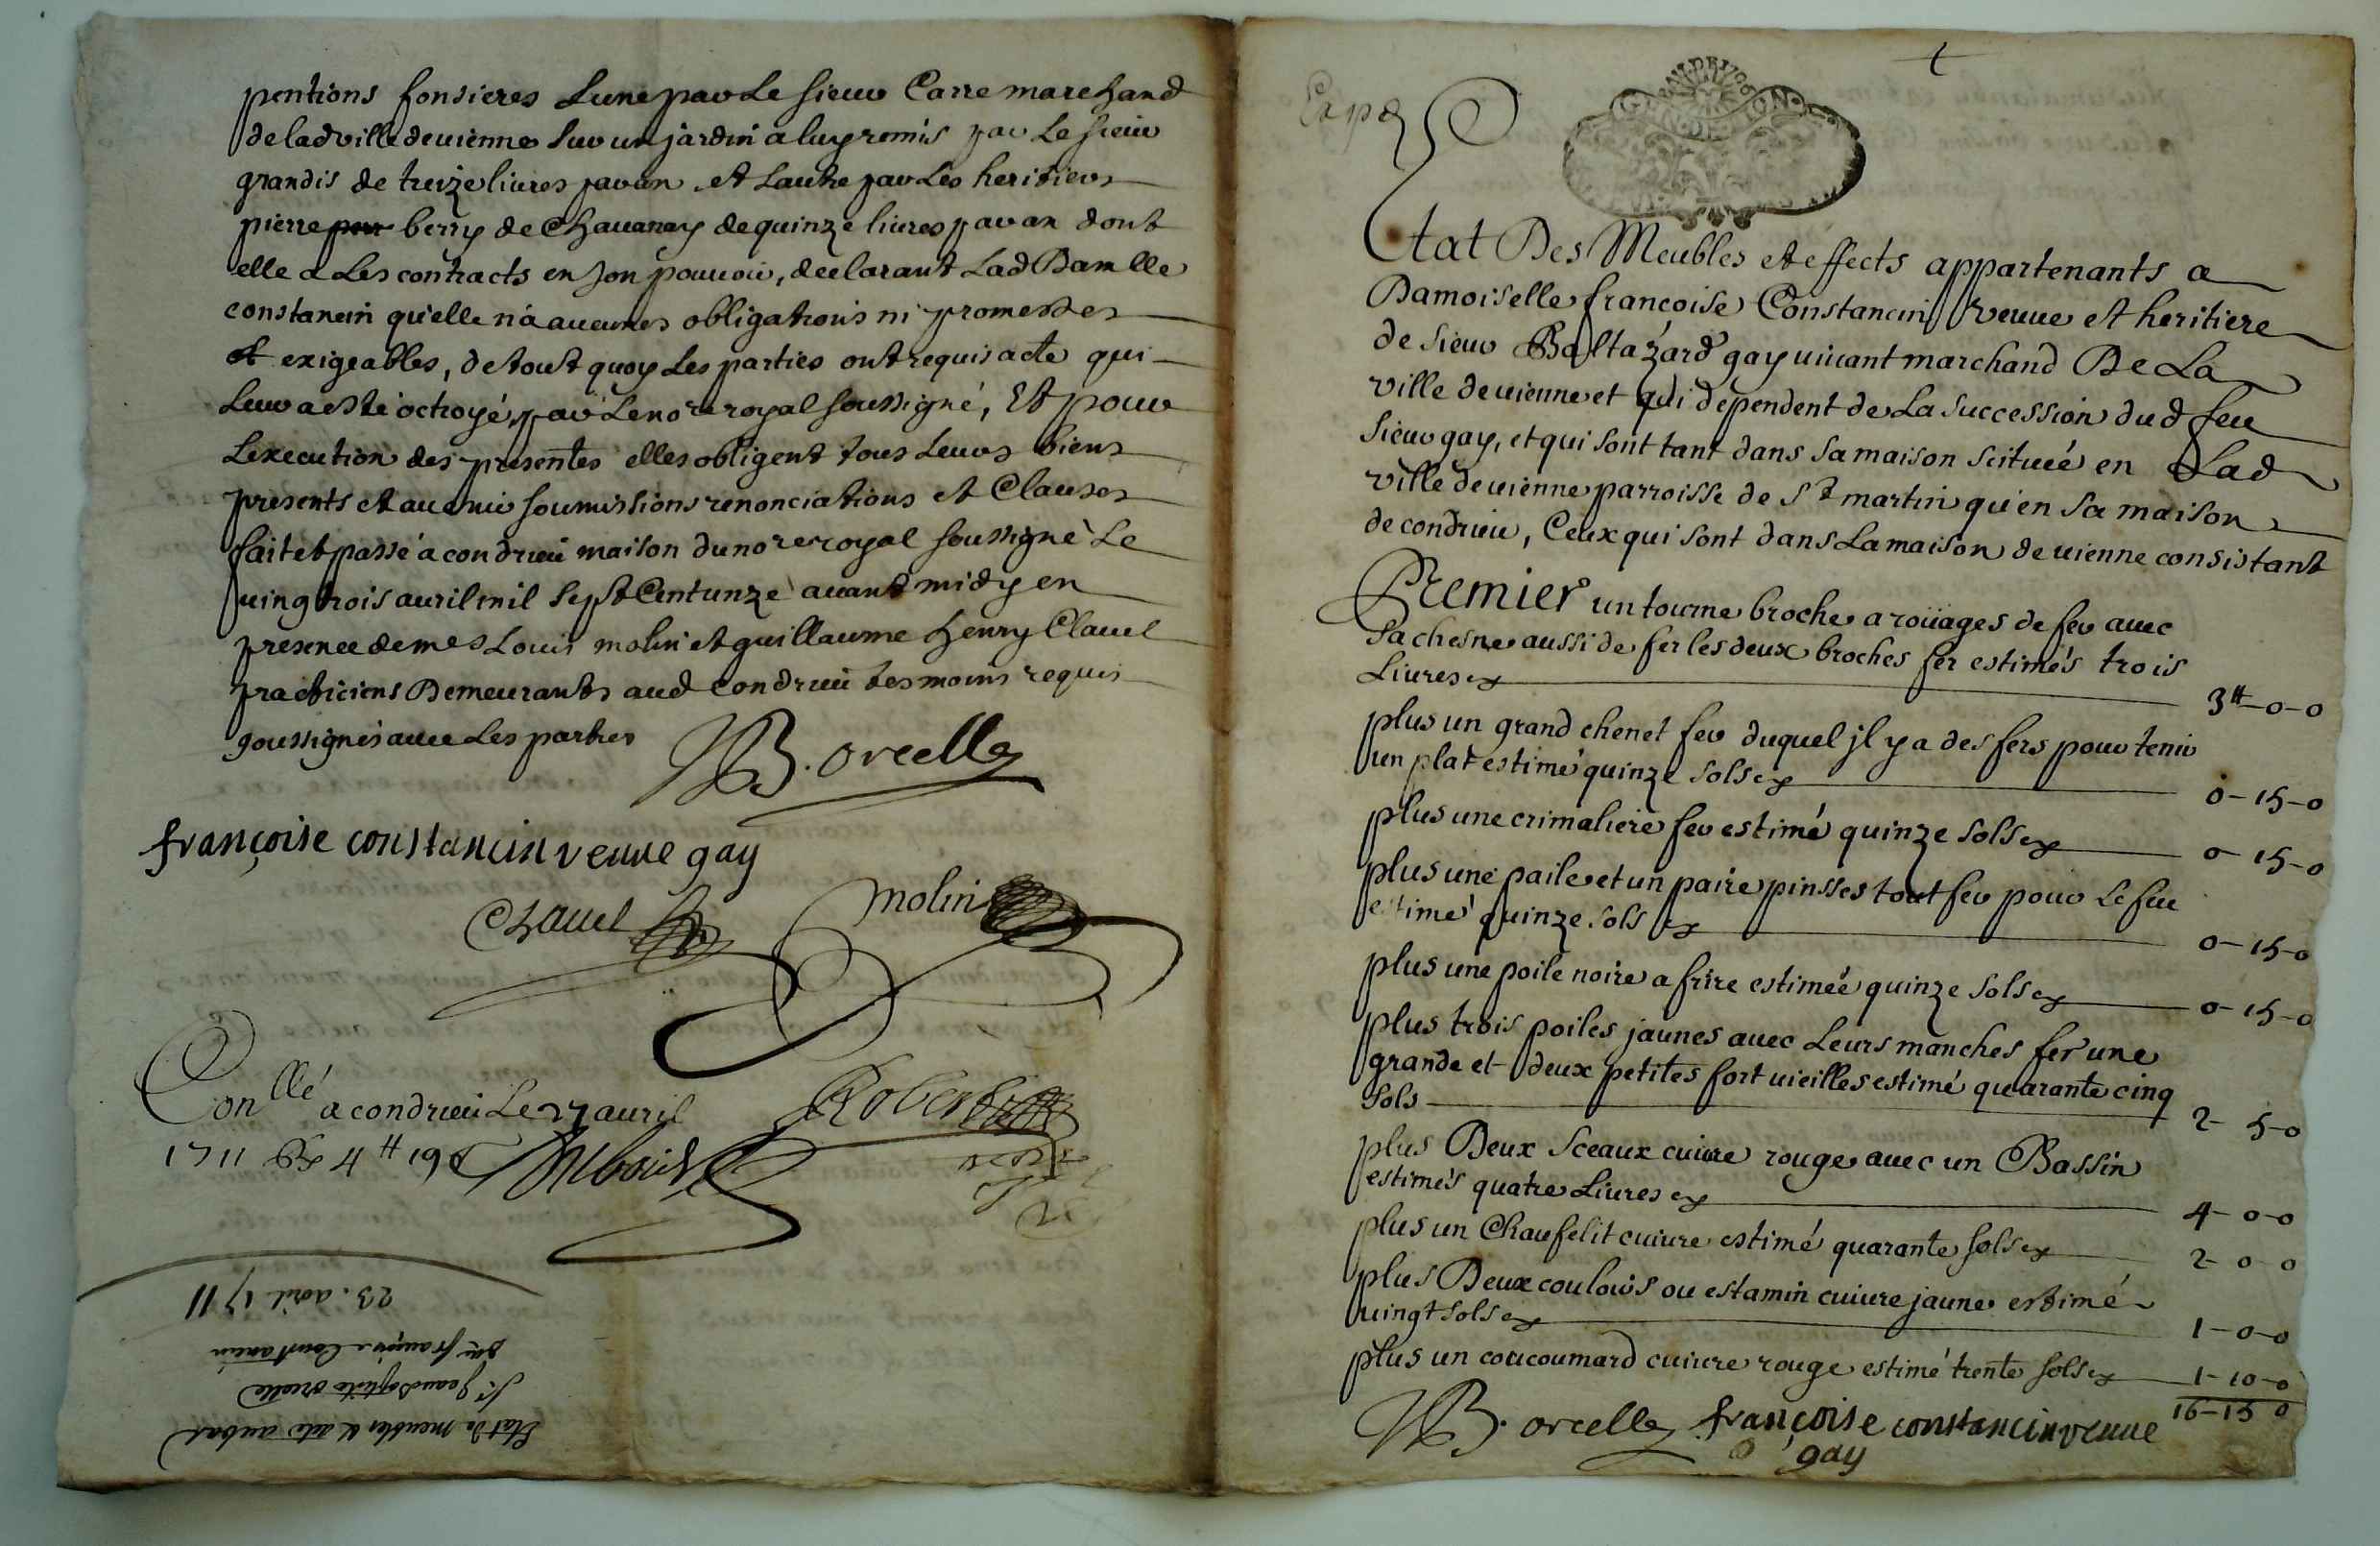 pentions fonsieres Lune par Le sieur Carre marchand
de lad ville de vienne sur un jardin a luy remis par Le sieur
grandis de treize livres par an et Lautre par Les heritiers
pierre berry de Chavanay de quinze livres par an dont
elle a Les contracts en son pouvoir, declarant Lad Damlle
constancin qu'elle n'a aucunes obligations ni promesses
et exigeables, de tout quoy Les parties ont requis acte qui
Leur a esté octroyé par Le nore royal soussigné, Et pour
Lexecution des presentes elles obligent tous Leurs biens
presents et avenir soumissions renonciations et Clauses
fait et passé a condrieu maison du nore royal soussigné Le
vingtrois avril mil sept Cent unze avant midy en
presence de mes Louis molin et guillaume henry Clavel
practiciens Demeurants aud condrieu tesmoins requis
soussignés avec Les parties
JB. orcelle
françoise constancin veuve gay
Clavel
molin
Conllé a condrieu Le 27 avril
1711
Robert
23. avril 1711
françoise Constancin
Sr Jean Baptiste orcelle
Etat de meubles et acte au bas
Exp
GEN DE LYON
Etat Des Meubles et effects appartenants a
Damoiselle francoise Constancin veuve et heritiere
de sieur Baltazard gay vivant marchand De La
ville de vienne et qui dependent de La succession dud feu
sieur gay, et qui sont tant dans sa maison scituée en Lad
ville de vienne parroisse de St martin qu'en sa maison
de condrieu, Ceux qui sont dans La maison de vienne consistant
Premier un tourne broche a roüages de fer avec
sa chesne aussi de fer les deux broches fer estimés trois
Livres 3tt-0-0
plus un grand chenet fer duquel jl y a des fers pour tenir
un plat estimé quinze sols 0-15-0
plus une crimaliere fer estimé quinze sols 0-15-0
plus une paile et un paire pinsses tout fer pour Le feu
estimé quinze sols 0-15-0
plus une poile noire a frire estimée quinze sols 0-15-0
plus trois poiles jaunes avec Leurs manches fer une
grande et deux petites fort vieilles estimé quarante cinq
sols 2-5-0
plus Deux sceaux cuivre rouge avec un Bassin
estimés quatre Livres 4-0-0
plus un Chaufelit cuivre estimé quarante sols 2-0-0
plus Deux couloirs ou estamin cuivre jaune estimé
vingt sols 1-0-0
plus un coucoumard cuivre rouge estimé trente sols 1-10-0
16-15-0
JB. orcelle françoise constancin veuve
gay